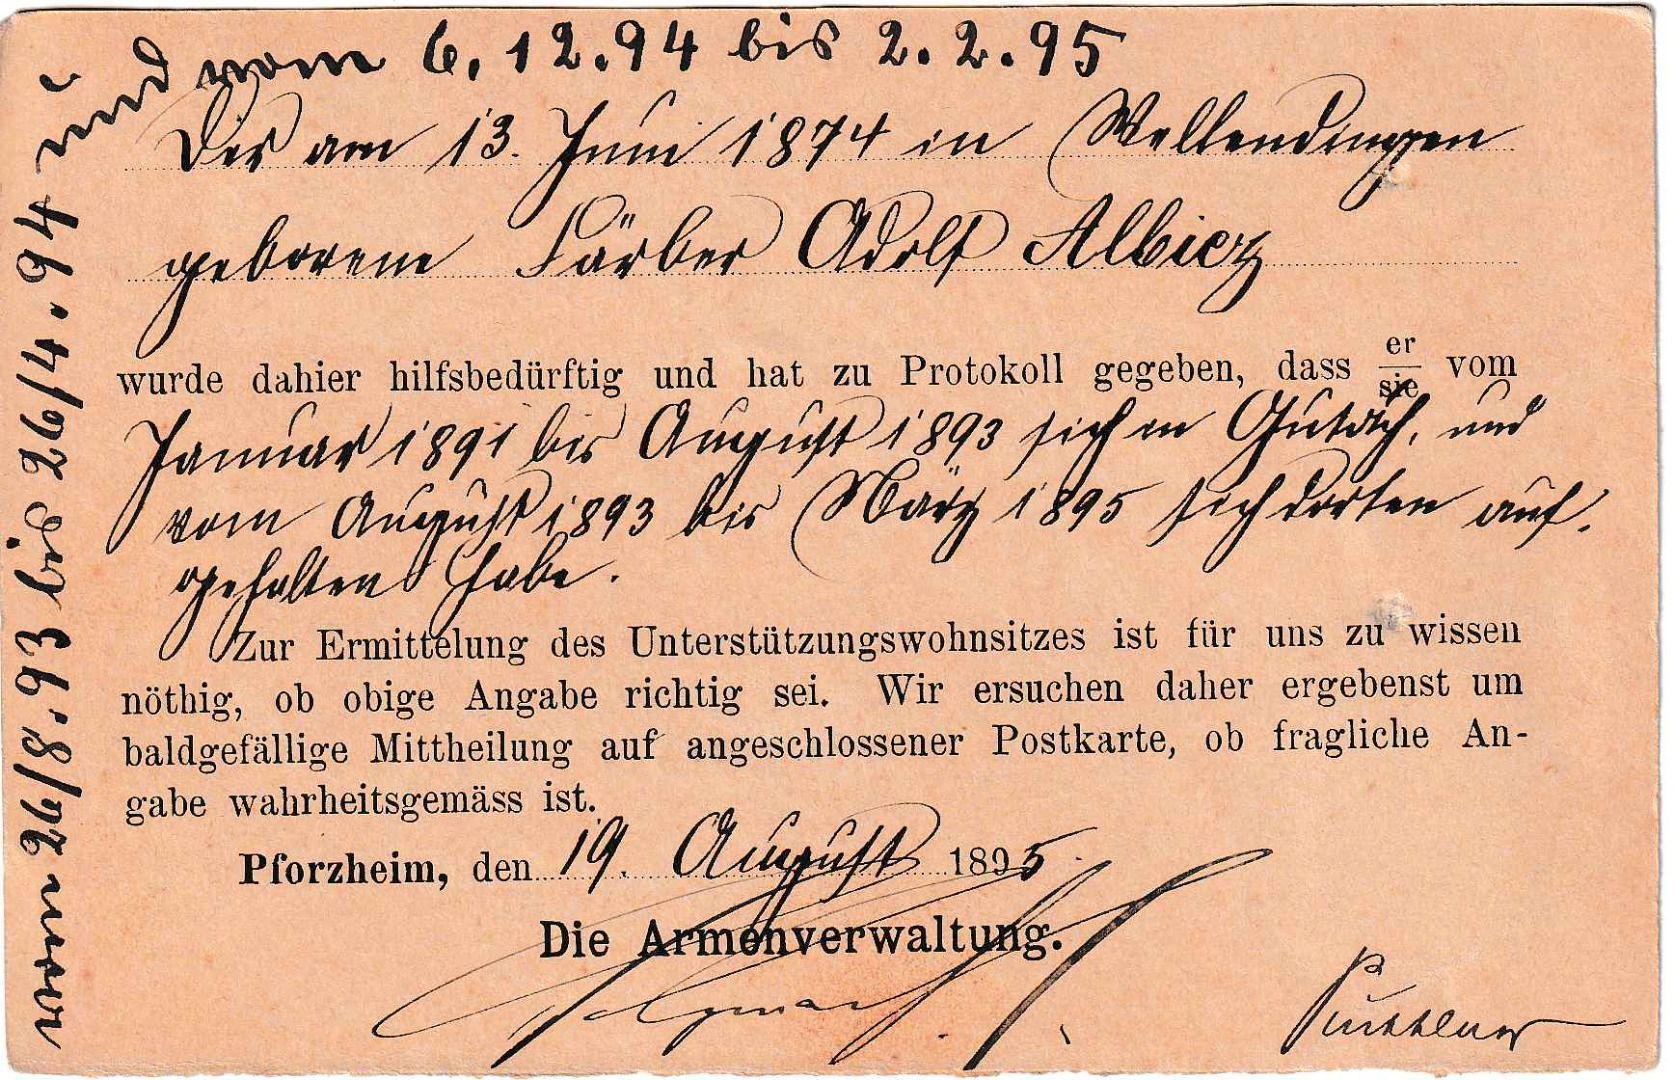 vom 26/8.93 bis 26/4.94 und vom 6.12.94 bis 2.2.95
Der am 13. Juni 1874 in Wellendingen
geborene Färber Adolf Albiez
wurde dahier hilfsbedürftig und hat zu Protokoll gegeben, dass er/sie vom
Januar 1891 bis August 1893 sich in Gutach, und
vom August 1893 bis März 1895 sich dorten auf-
gehalten habe.
Zur Ermittelung des Unterstützungswohnsitzes ist für uns zu wissen
nöthig, ob obige Angabe richtig sei. Wir ersuchen daher ergebenst um
baldgefällige Mittheilung auf angeschlossener Postkarte, ob fragliche An-
gabe wahrheitsgemäss ist.
Pforzheim, den 19. August 1895
Die Armenverwaltung.